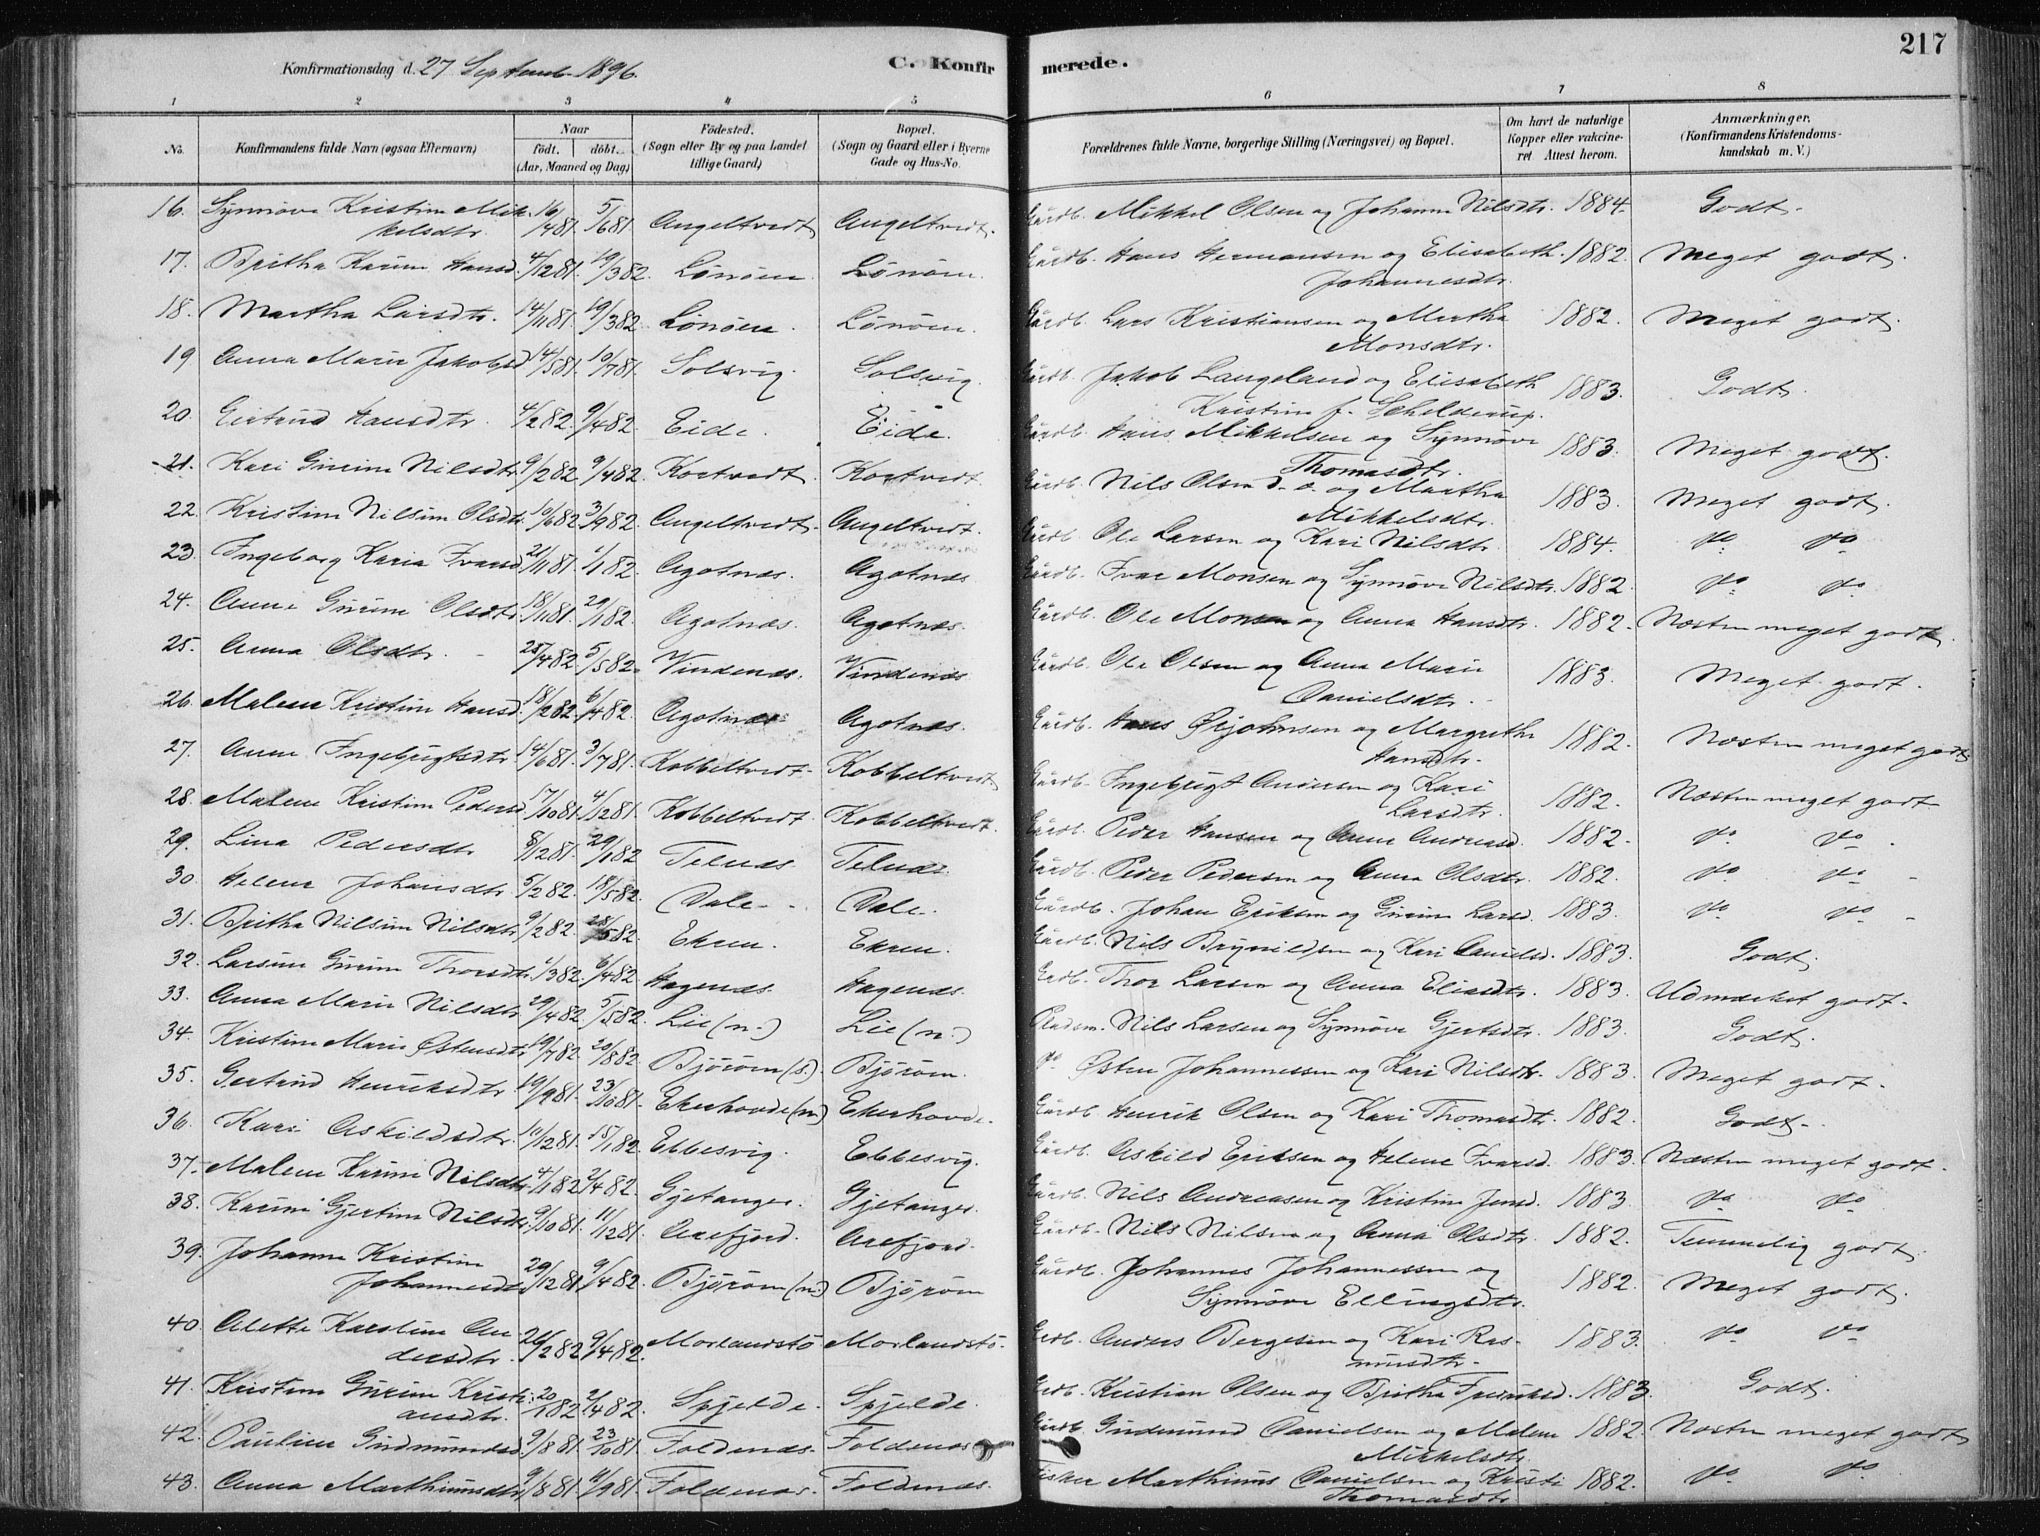 217
Konfirmationsdag d. 27 Septemb. 1896.
C. Konfirmerede.
1 2 3 4 5 6 7 8
No.
Konfirmandens fulde Navn (ogsaa Efternavn)
Naar
født. døbt.
(Aar, Maaned og Dag)
Fødested.
(Sogn eller By og paa Landet
tillige Gaard)
Bopæl.
(Sogn og Gaard eller i Byerne
Gade og Hus-No.
Forældrenes fulde Navne, borgerlige Stilling (Næringsvei) og Bopæl.
Om havt de naturlige
Kopper eller vakcine-
ret Attest herom.
Anmærkninger.
(Konfirmandens Kristendoms-
kundskab m. V.)
16. Synnøve Kristine Mik- 16/481. 5/681. Angeltvedt Angeltvedt. Gårdb. Mikkel Olsen og Johanne Nilsdtr. 1884. Godt.
kelsdtr.
17. Britha Karine Hansd. 4/1281. 19/382. Lönöen Lönöen. Gårdb. Hans Hermansen og Elisabeth 1882. Meget godt.
Johannesdtr.
18. Martha Larsdtr. 14/1181. 19/382. Lönöen. Lönöen. Gårdb. Lars Kristiansen og Martha 1882. Meget godt.
Monsdtr.
19 Anna Marie Jakobsd. 14/581. 10/781. Solsvig. Solsvig. Gårdb. Jakob Langeland og Elisabeth 1883. Godt.
Kristine f. Schelderup.
20. Gjertrud Hansdtr. 4/282. 9/482. Eide. Eide. Gårdb. Hans Mikkelsen og Synnøve 1883. Meget godt.
Thomasdtr.
21. Kari Gurine Nilsdtr. 9/282. 9/482. Kortvedt. Kortvedt. Gårdb. Nils Olsen d. e. og Martha 1883. Meget godt.
Mikkelsdtr.
22. Kristine Nilsine Olsdtr. 10/682. 3/982. Angeltvedt. Angeltvedt. Gårdb. Ole Larsen og Kari Nilsdtr. 1884. do do
23. Ingeborg Karia Ivarsd. 21/1181. 1/182. Agotnæs. Agotnæs Gårdb. Ivar Monsen og Synnøve Nilsdtr. 1882. do do
24. Anne Gurine Olsdtr. 18/1181. 29/182. Agotnæs. Agotnæs. Gårdb. Ole Monsen og Anna Hansdtr. 1882. Næsten meget godt.
25. Anna Olsdtr. 25/482. 5/582. Vindenæs. Vindenæs Gårdb. Ole Olsen og Anna Marie 1883. Meget godt.
Danielsdtr.
26. Malene Kristine Hansd. 18/282. 6/482. Agotnæs Agotnæs. Gårdb. Hans Ørjohnsen og Margrethe 1882. Næsten meget godt
Hansdtr.
27. Anne Ingebrigtsdtr. 14/681. 3/781. Kobbeltvedt. Kobbeltvedt Gårdb. Ingebrigt Andersen og Kari 1882. Næsten meget godt
Larsdtr.
28. Malene Kristine Pedersd. 17/1081. 4/1281. Kobbeltvedt. Kobbeltvedt. Gårdb. Peder Hansen og Anne Andreasd. 1882. do do.
29. Lina Pedersdtr. 8/1281. 29/182 Telnæs. Telnæs. Gårdb. Peder Pedersen og Anna Olsdtr. 1882. do do
30. Helene Johansdtr. 5/282. 18/582. Dale. Dale. Gårdb. Johan Eriksen og Gurine Larsd. 1883. do do
31. Britha Nilsine Nilsdtr. 9/282. 28/582. Ekren. Ekren. Gårdb. Nils Brynildsen og Kari Danielsd. 1883. Godt.
32. Larsine Gurine Thorsdtr. 1/382. 6/482 Hagenæs. Hagenæs. Grdb. Thor Larsen og Anna Eliasdtr. 1883. Udmærket godt.
33. Anna Marie Nilsdtr. 29/482. 5/582. Lie (n.) Lie (n.) Pladsm. Nils Larsen og Synnøve Gjertsdtr. 1883. Godt.
34. Kristine Marie Østensdtr. 19/782. 20/882. Björöen (s.). Björöen. do Østen Johannessen og Kari Nilsdtr. 1883. Meget godt.
35. Gertrud Henriksdtr. 19/981. 23/1081. Ekerhovde (n.) Ekerhovde. Gårdb. Henrik Olsen og Kari Thomasdtr. 1882. Godt.
36. Kari Askildsdtr. 10/1281. 15/182. Ebbesvig. Ebbesvig. Gårdb. Askild Eriksen og Helene Ivarsd. 1883. Næsten meget godt.
37. Malene Karine Nilsdtr. 4/182. 2/482. Gjetanger. Gjetanger. Gårdb. Nils Andreasen og Kristine Jensd. 1883. do do
38. Karine Gjertine Nilsdtr. 9/1081. 11/1281. Arefjord. Arefjord. Gårdb. Nils Nilsen og Anna Olsdtr. 1882. Temmelig godt.
39. Johanne Kristine 29/1281. 9/482. Björöen (n.) Björöen Gårdb. Johannes Johannessen og 1882. Meget godt.
Johannesdtr. Synnøve Ellingsdtr.
40. Alette Karoline An- 26/282. 9/482. Morlandstö Morlandstö. Grdb. Anders Børgesen og Kari Ras- 1883. do do
dersdtr. musdtr.
41. Kristine Gurine Kristi- 20/182. 2/482. Spjelde. Spjelde. Grdb. Kristian Olsen og Britha Fredriksd. 1883. Godt.
ansdtr.
42. Pauline Gudmundsd. 9/881. 23/1081. Foldenæs. Foldenæs Gårdb. Gudmund Danielsen og Malene 1882. Næsten meget godt
Mikkelsdtr.
43. Anna Marthinusdtr. 9/881. 11/981. Foldenæs. Foldenæs. Fisker Marthinus Danielsen og Kristi 1882. do do
Thomasdtr.